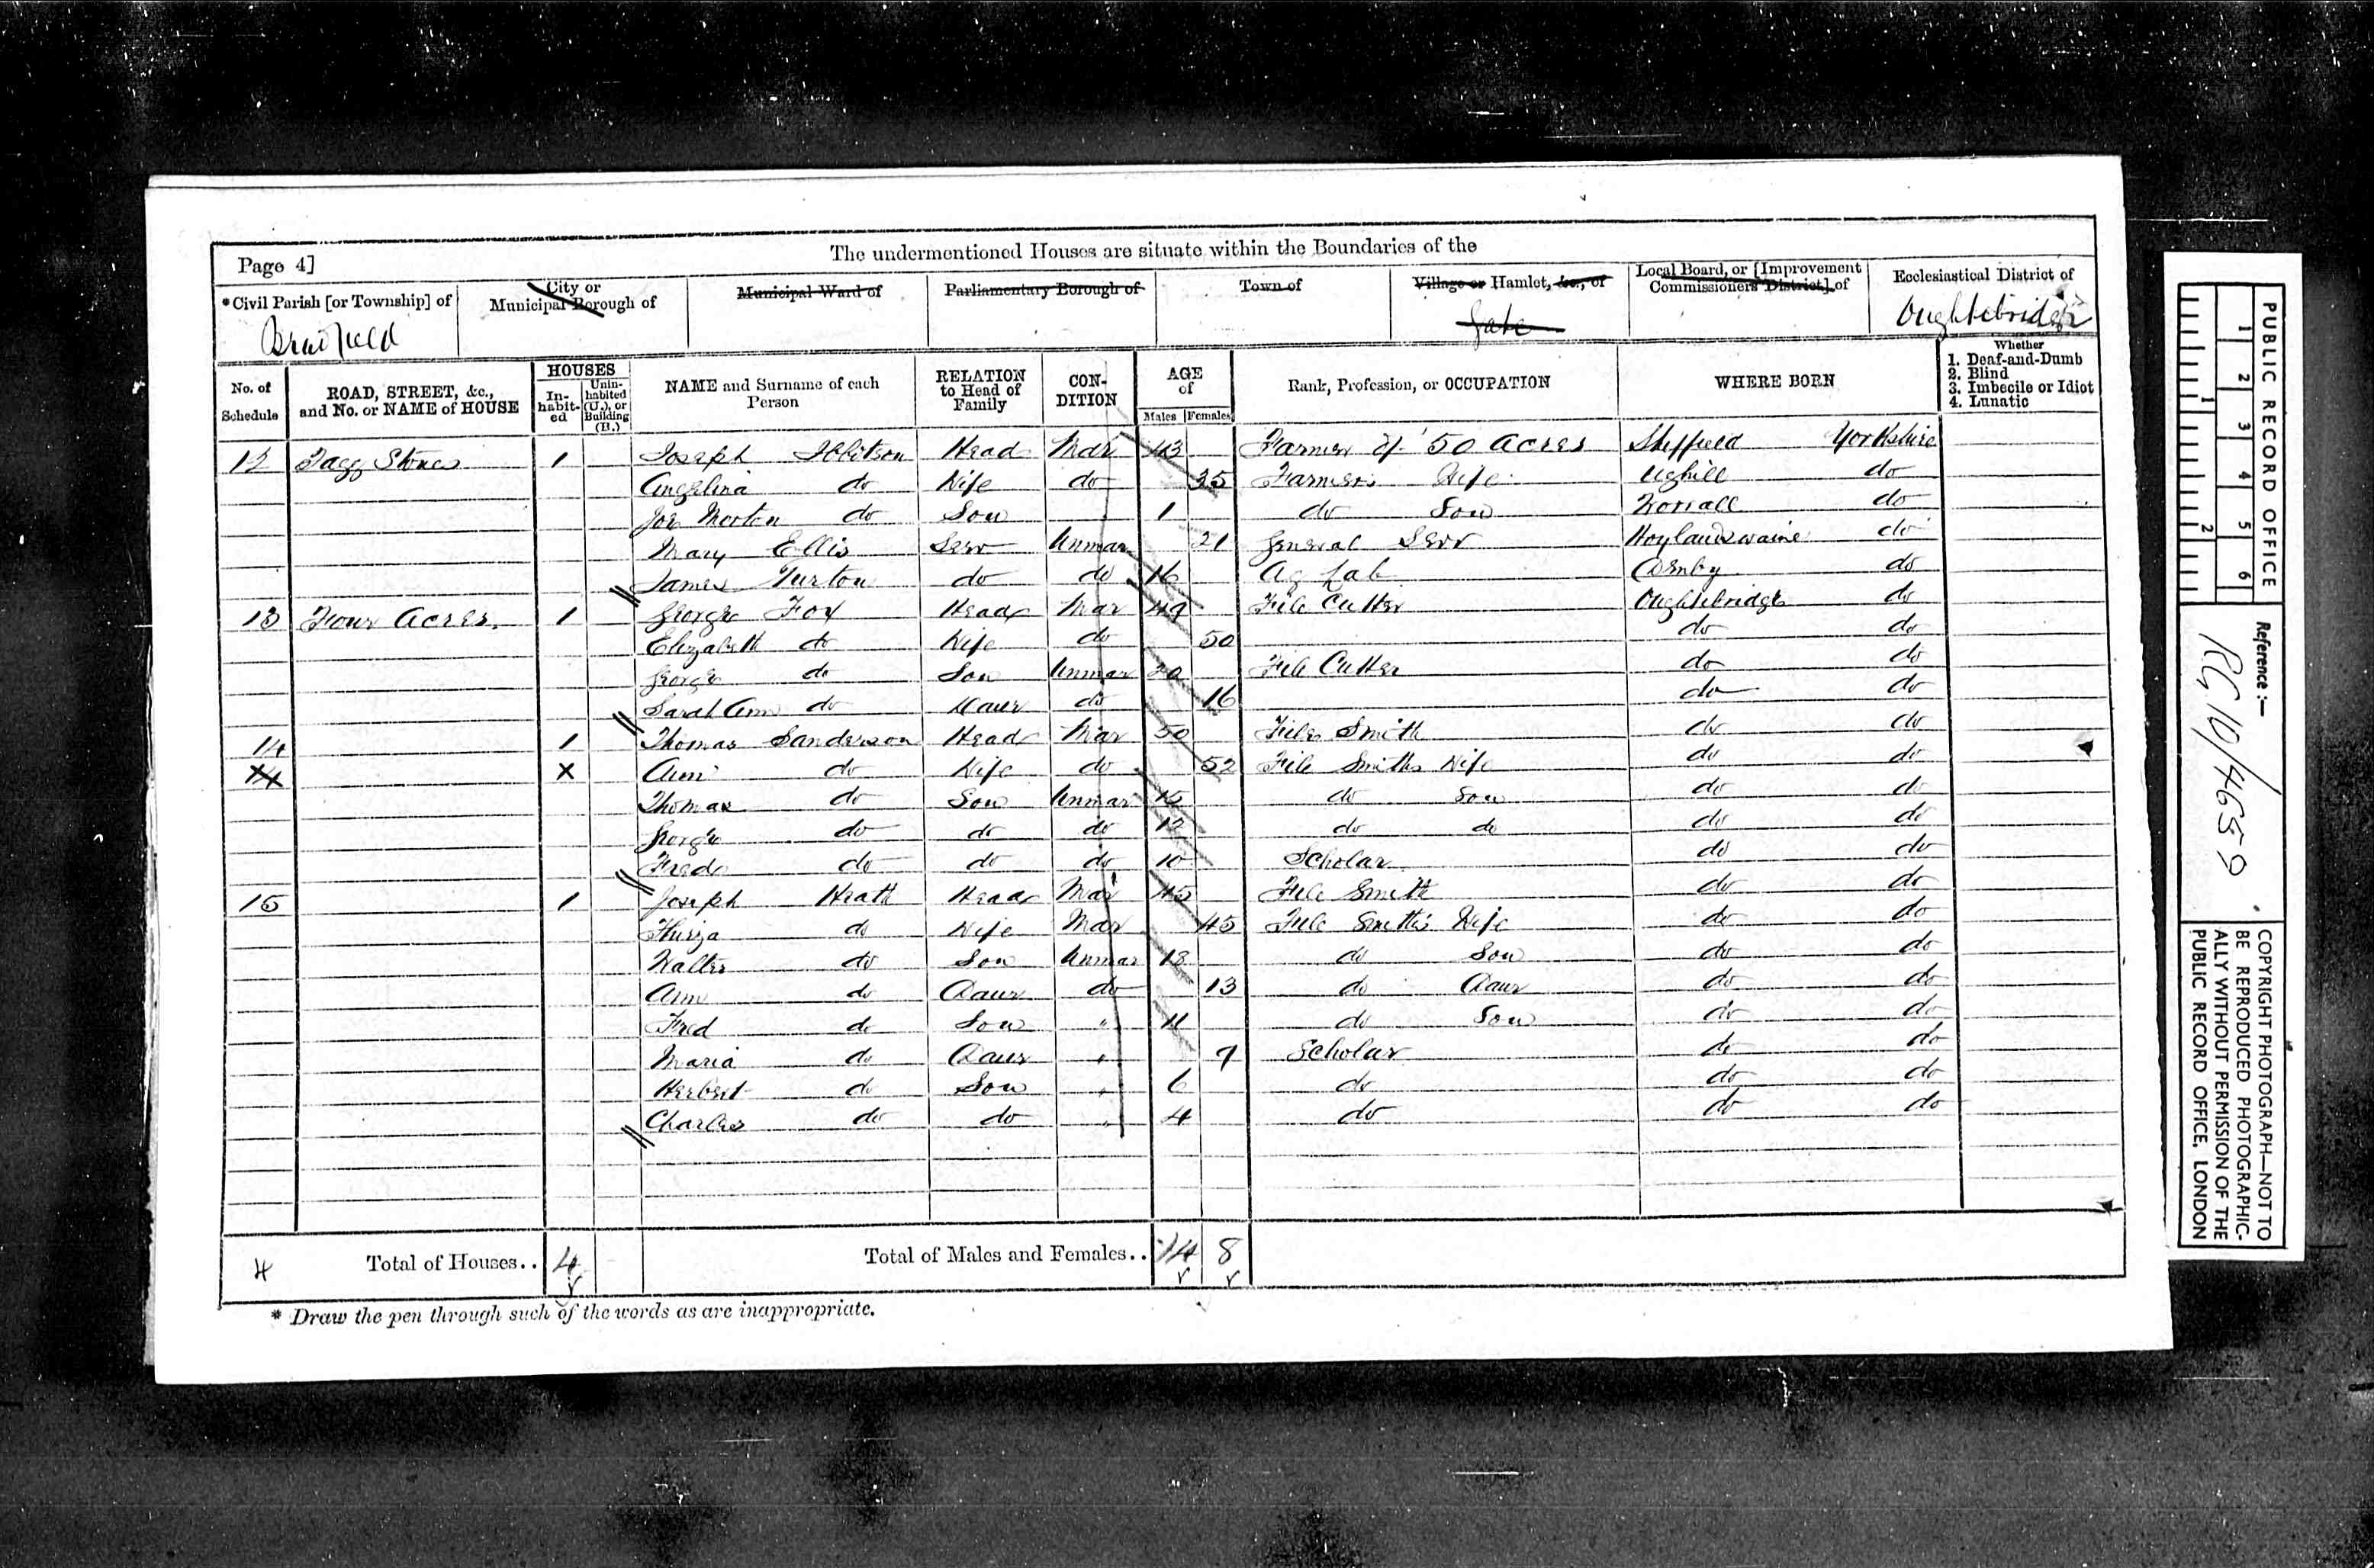 The undermentioned Houses are situate within the Boundaries of the
Page 4]
*Civil Parish [or Township] of
City or Municipal Borough of
Municipal Ward of
Parliamentary Borough of
Town of
Village or Hamlet, &c., of
Local Board, or [Improvement Commissioners District] of
Ecclesiastical District of
Bradfield
Oughtebridge
No. of Schedule
ROAD, STREET, &c., and No. or NAME of HOUSE
HOUSES
In-habit-ed
Unin-habited (U.), or Building (B.)
NAME and Surname of each Person
RELATION to Head of Family
CON-DITION
AGE of
Males Females
Rank, Profession, or OCCUPATION
WHERE BORN
Whether
1. Deaf-and-Dumb
2. Blind
3. Imbecile or Idiot
4. Lunatic
12 Tagg Stones 1 Joseph Ibbitson Head Mar 43 Farmer of 50 Acres Sheffield Yorkshire
Angelina do Wife do 35 Farmers Wife Ughill do
Joe Morton do Son 1 do Son Worrall do
Mary Ellis Serv Unmar 21 General Serv Hoylandswaine do
James Turton do do 16 Ag Lab Denby do
13 Four Acres. 1 George Fox Head Mar 49 File Cutter Oughtebridge do
Elizabeth do Wife do 50 do do
George do Son Unmar 20 File Cutter do do
Sarah Ann do Daur do 16 do do
14 1 Thomas Sanderson Head Mar 50 File Smith do do
14 X Ann do Wife do 52 File Smiths Wife do do
Thomas do Son Unmar 15 do Son do do
George do do do 12 do do do do
Fred do do do 10 Scholar do do
15 1 Joseph Heath Head Mar 45 File Smith do do
Thirza do Wife Mar 45 File Smith's Wife do do
Walter do Son Unmar 18 do Son do do
Ann do Daur do 13 do Daur do do
Fred do Son " 11 do Son do do
Maria do Daur " 9 Scholar do do
Herbert do Son " 6 do do do
Charles do do " 4 do do do
4 Total of Houses.. 4 Total of Males and Females.. 14 8
* Draw the pen through such of the words as are inappropriate.
PUBLIC RECORD OFFICE
1 2 3 4 5 6
1 2
Reference :—
RG 10/4659
COPYRIGHT PHOTOGRAPH—NOT TO
BE REPRODUCED PHOTOGRAPHIC-
ALLY WITHOUT PERMISSION OF THE
PUBLIC RECORD OFFICE, LONDON